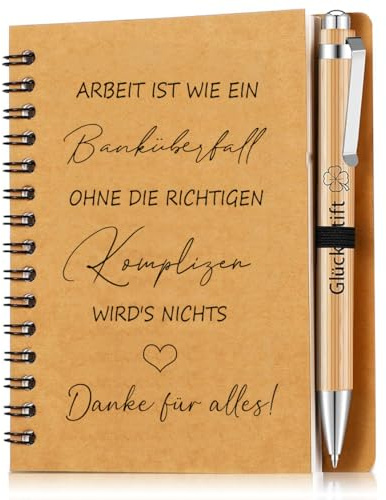 ARBEIT IST WIE EIN
Banküberfall
OHNE DIE RICHTIGEN
Komplizen
WIRD'S NICHTS
Danke für alles!
Glücksstift